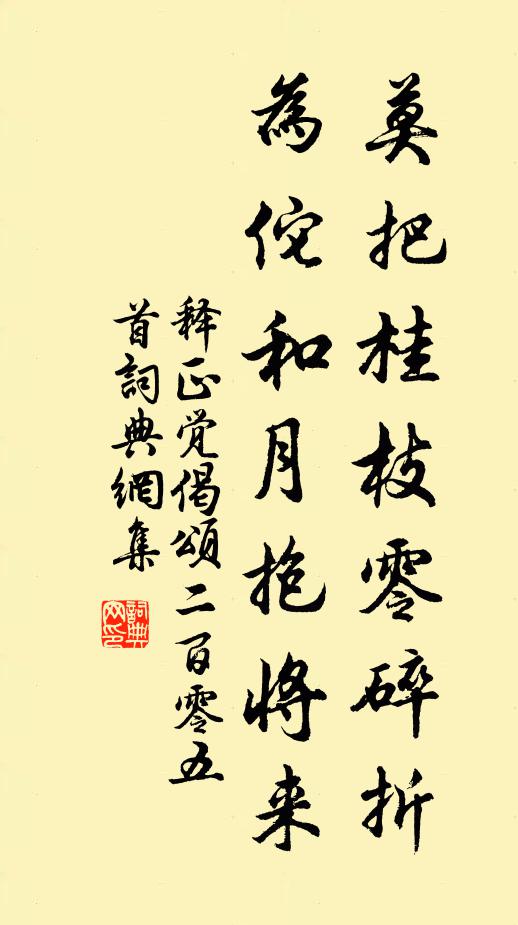 莫把桂枝零碎折
為佗和月抱將来
释正觉偈頌二百零五
首詞典網集
詞典網印